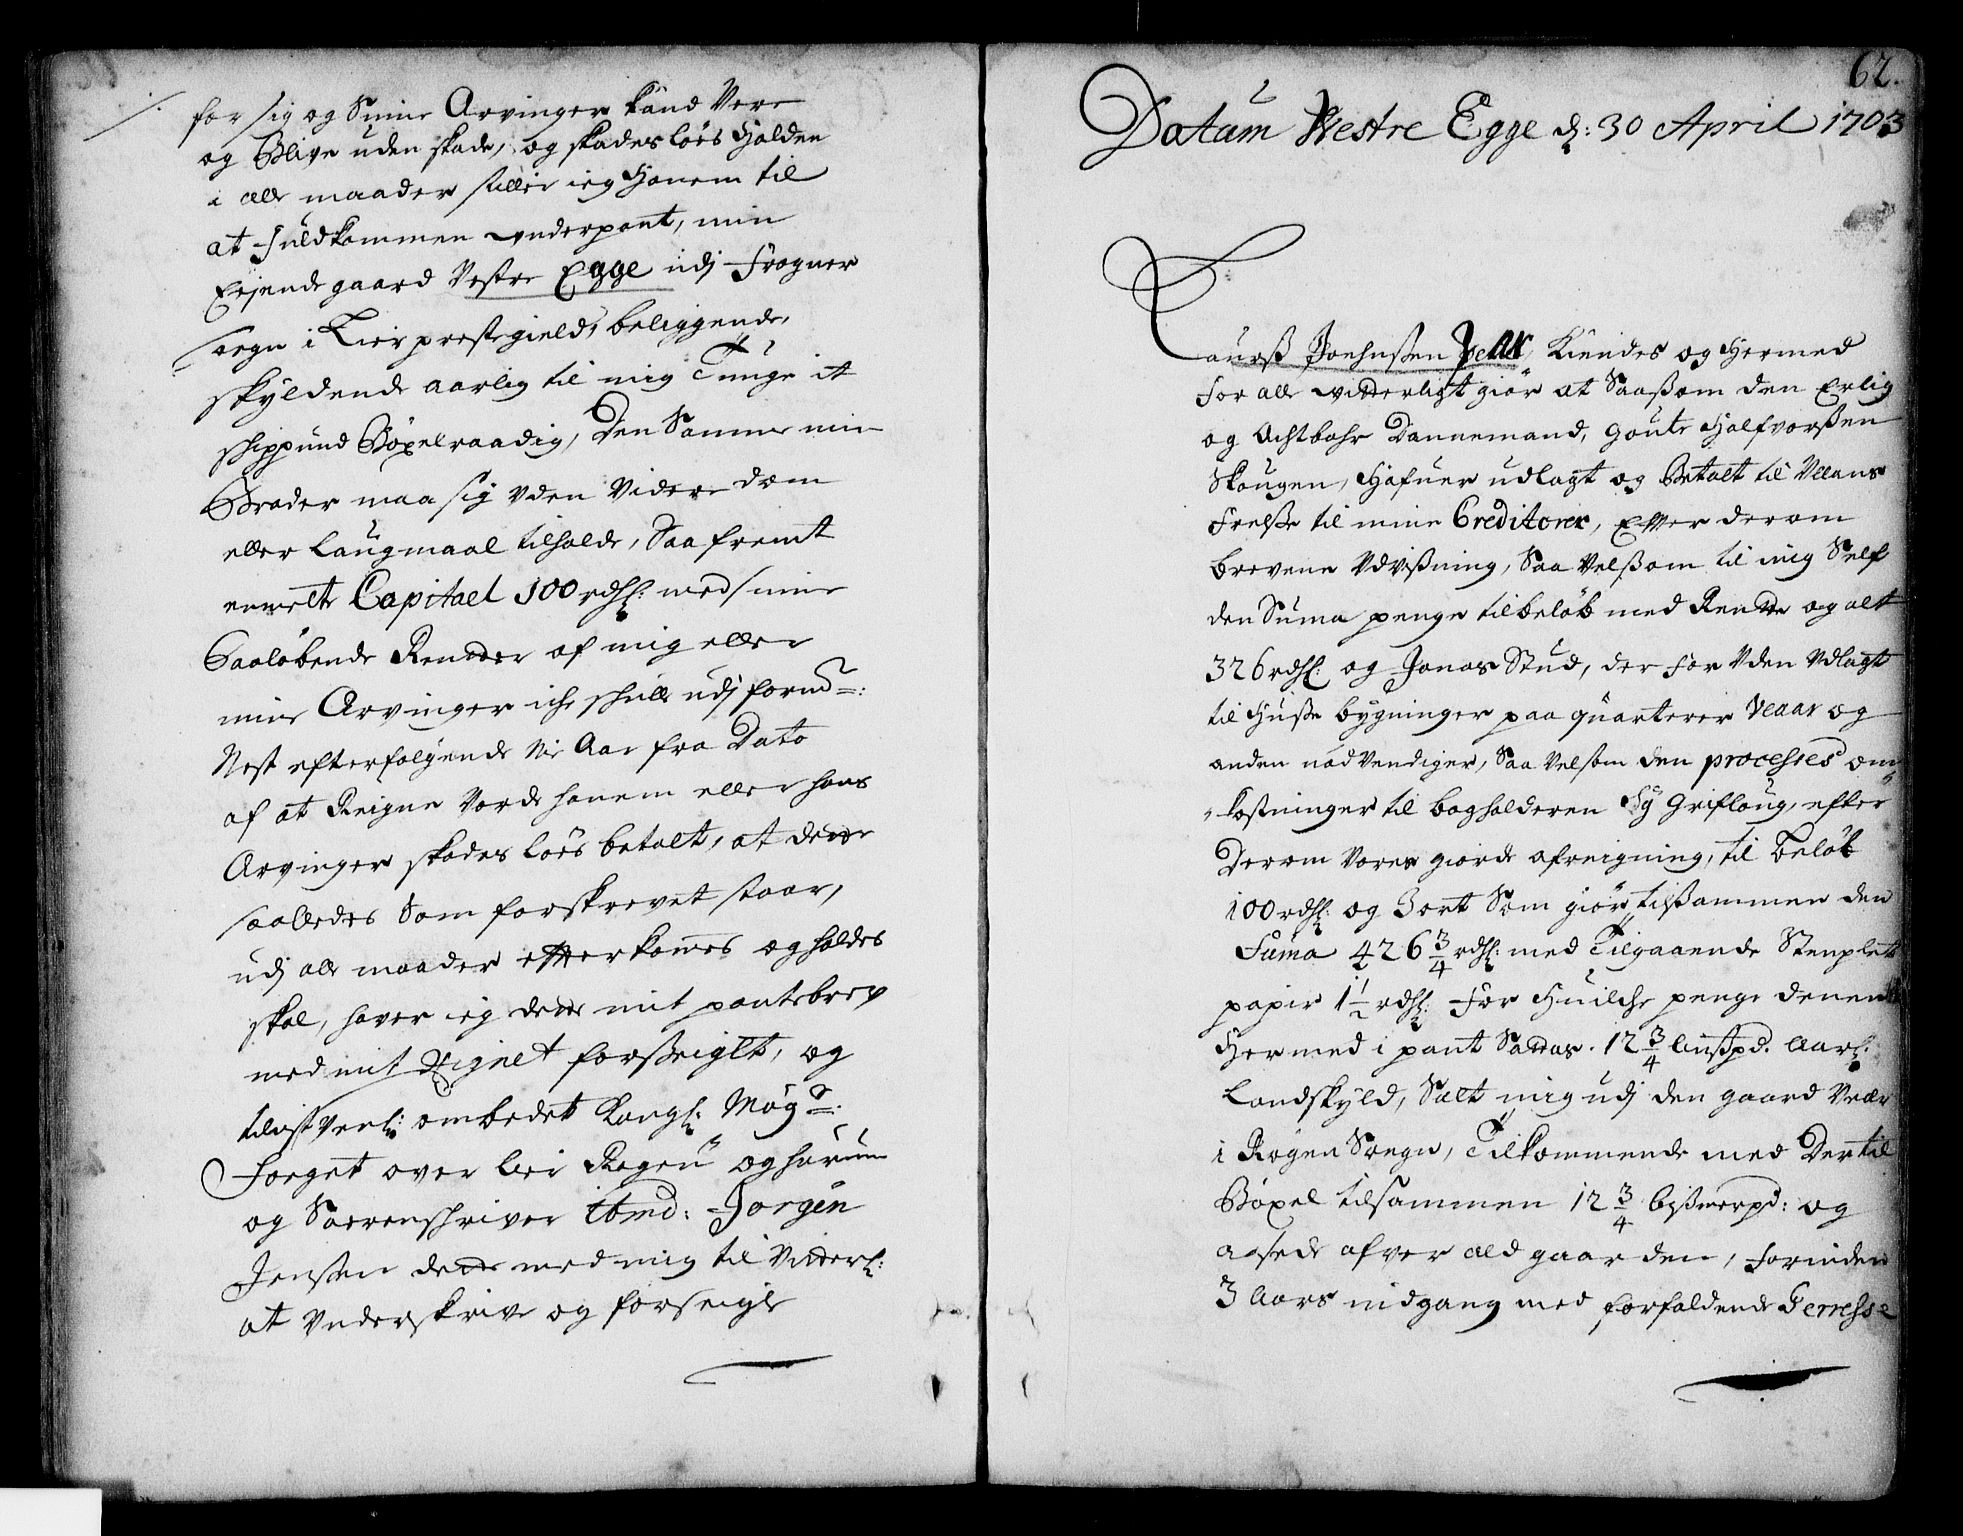 for sig og Sinne Arvinger kand Vere
og Blive uden skade, og skadesløes Holden
i alle maader stiller ieg Hanem til
at Fuldkommen underpant, min
Eiende gaard Vestre Egge udj Frogner
sogn i Lier prestegield, beliggende,
skyldende aarlig til mig Tunge it
schippund Bøxelraadig, Den Samme min
Broder maa sig Vden Videre dom
eller Laugmaal tilholde, Saa fremt
enmelte Capitael 100 rdhl: med sinne
Paaløbende Rendter af mig eller
mine Arvinger iche schulle udj forud
Nest efterfølgende Aar fra Dato
af at Reigne Vorde hanem eller hans
Arvinger skadesløes betalt, at dette
saaledes Som forskrevet staar,
udj alle maader efterkomes og holdes
skal, haver ieg dette mit pantebrev
med mit Signet forßeiglt, og
tienstvenl: ombedet Kongl: Mög:
Foeget over Lier Røgen og hurum
og Soerenschriver Jørgen
Jenßen dette med mig til Vitterl:
at Vnderskrive og forseigle
62.
Datum Westre Egge d: 30 April 1703
Laurß Joehnßen Kiendes og Hermed
for alle vitterligt giør at Saaßom den Erlig
og Achtbahr Dannemand, Goute Halfvorßen
Skougen, Hafuer udlagt og Betalt til
Frelße til mine Creditorer, Efter derom
brevene Vdvißning, Saa Velßom til mig Self
den Suma penge tilbeløb med Rendte og alt
326 rdhl: og Jonas Stud, der for Vden Vdlagt
til Huße bygninger paa quarterer Veaar og
anden nødvendiger, Saa Velsom den processes om
kostninger til bogholderen Grifloug, efter
Derom Vores giorde afreigning, til Beløb
100 rdhl: og 3 ort Som giør tilsammen den
Suma 426 3/4 rdhl: med Tilgaaende Stemplet
papir 1 1/2 rdhl: For Huilche penge denem
Hermed i pant Sættes. 12 3/4 lißpd. Aarl:
Landskyld, Sælt mig udj den gaard Veær
i Røgen Sogn, Tilkommende med Dertil
Bøxel tilsammen 12 3/4 bißmerpd: og
aasæde afver ald gaarden, forinden
3 Aars nidgang med forfaldende Interesse